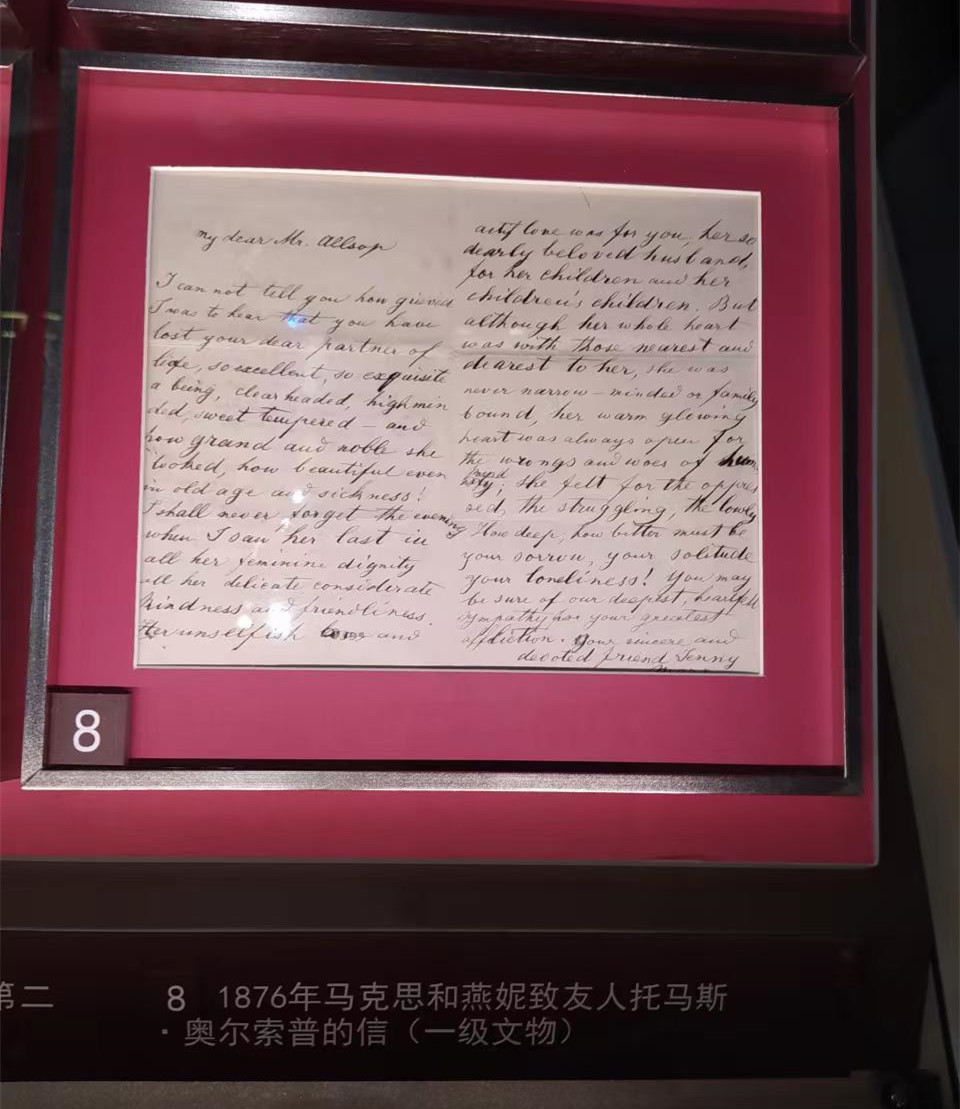 my dear Mr. Allsop
I can not tell you how grieved
I was to hear that you have
lost your dear partner of
life, so excellent, so exquisite
a being, clearheaded, highmin
ded, sweet tempered - and
how grand and noble she
looked, how beautiful even
in old age and sickness!
I shall never forget the evening
when I saw her last in
all her feminine dignity
all her delicate considerate
kindness and friendliness.
Her unselfish love and
love was for you, her so
dearly beloved husband,
for her children and her
children's children. But
although her whole heart
was with those nearest and
dearest to her, she was
never narrow-minded or family
bound, her warm glowing
heart was always open for
the wrongs and woes of
she felt for the oppres
sed, the struggling, the lowly
How deep, how bitter must be
your sorrow, your solitude
your loneliness! You may
be sure of our deepest, heartfelt
sympathy for your greatest
affliction. Your sincere and
devoted friend Jenny
8
第二
8 1876年马克思和燕妮致友人托马斯
·奥尔索普的信（一级文物）